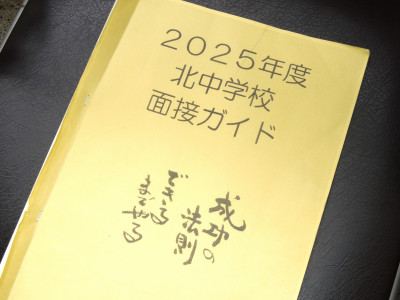 2025年度
北中学校
面接ガイド
成功の
法則
できる
までやる